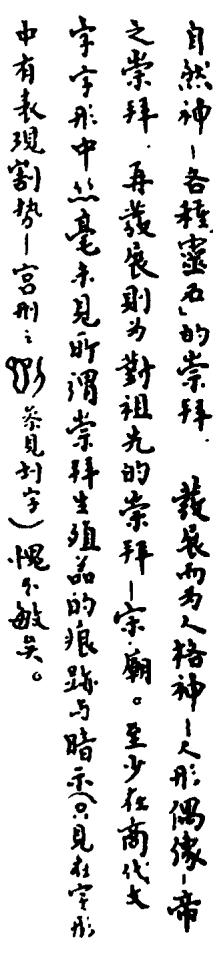 自然神—各種「靈石」的崇拜．發展而为人格神—人形偶像—帝
之崇拜．再發展則为對祖先的崇拜—宗．廟。至少在商代文
字字形中丝毫未見所谓崇拜生殖器的痕跡与暗示（只見在字形
中有表現割勢—宫刑之 参見刘字）愧不敏矣。